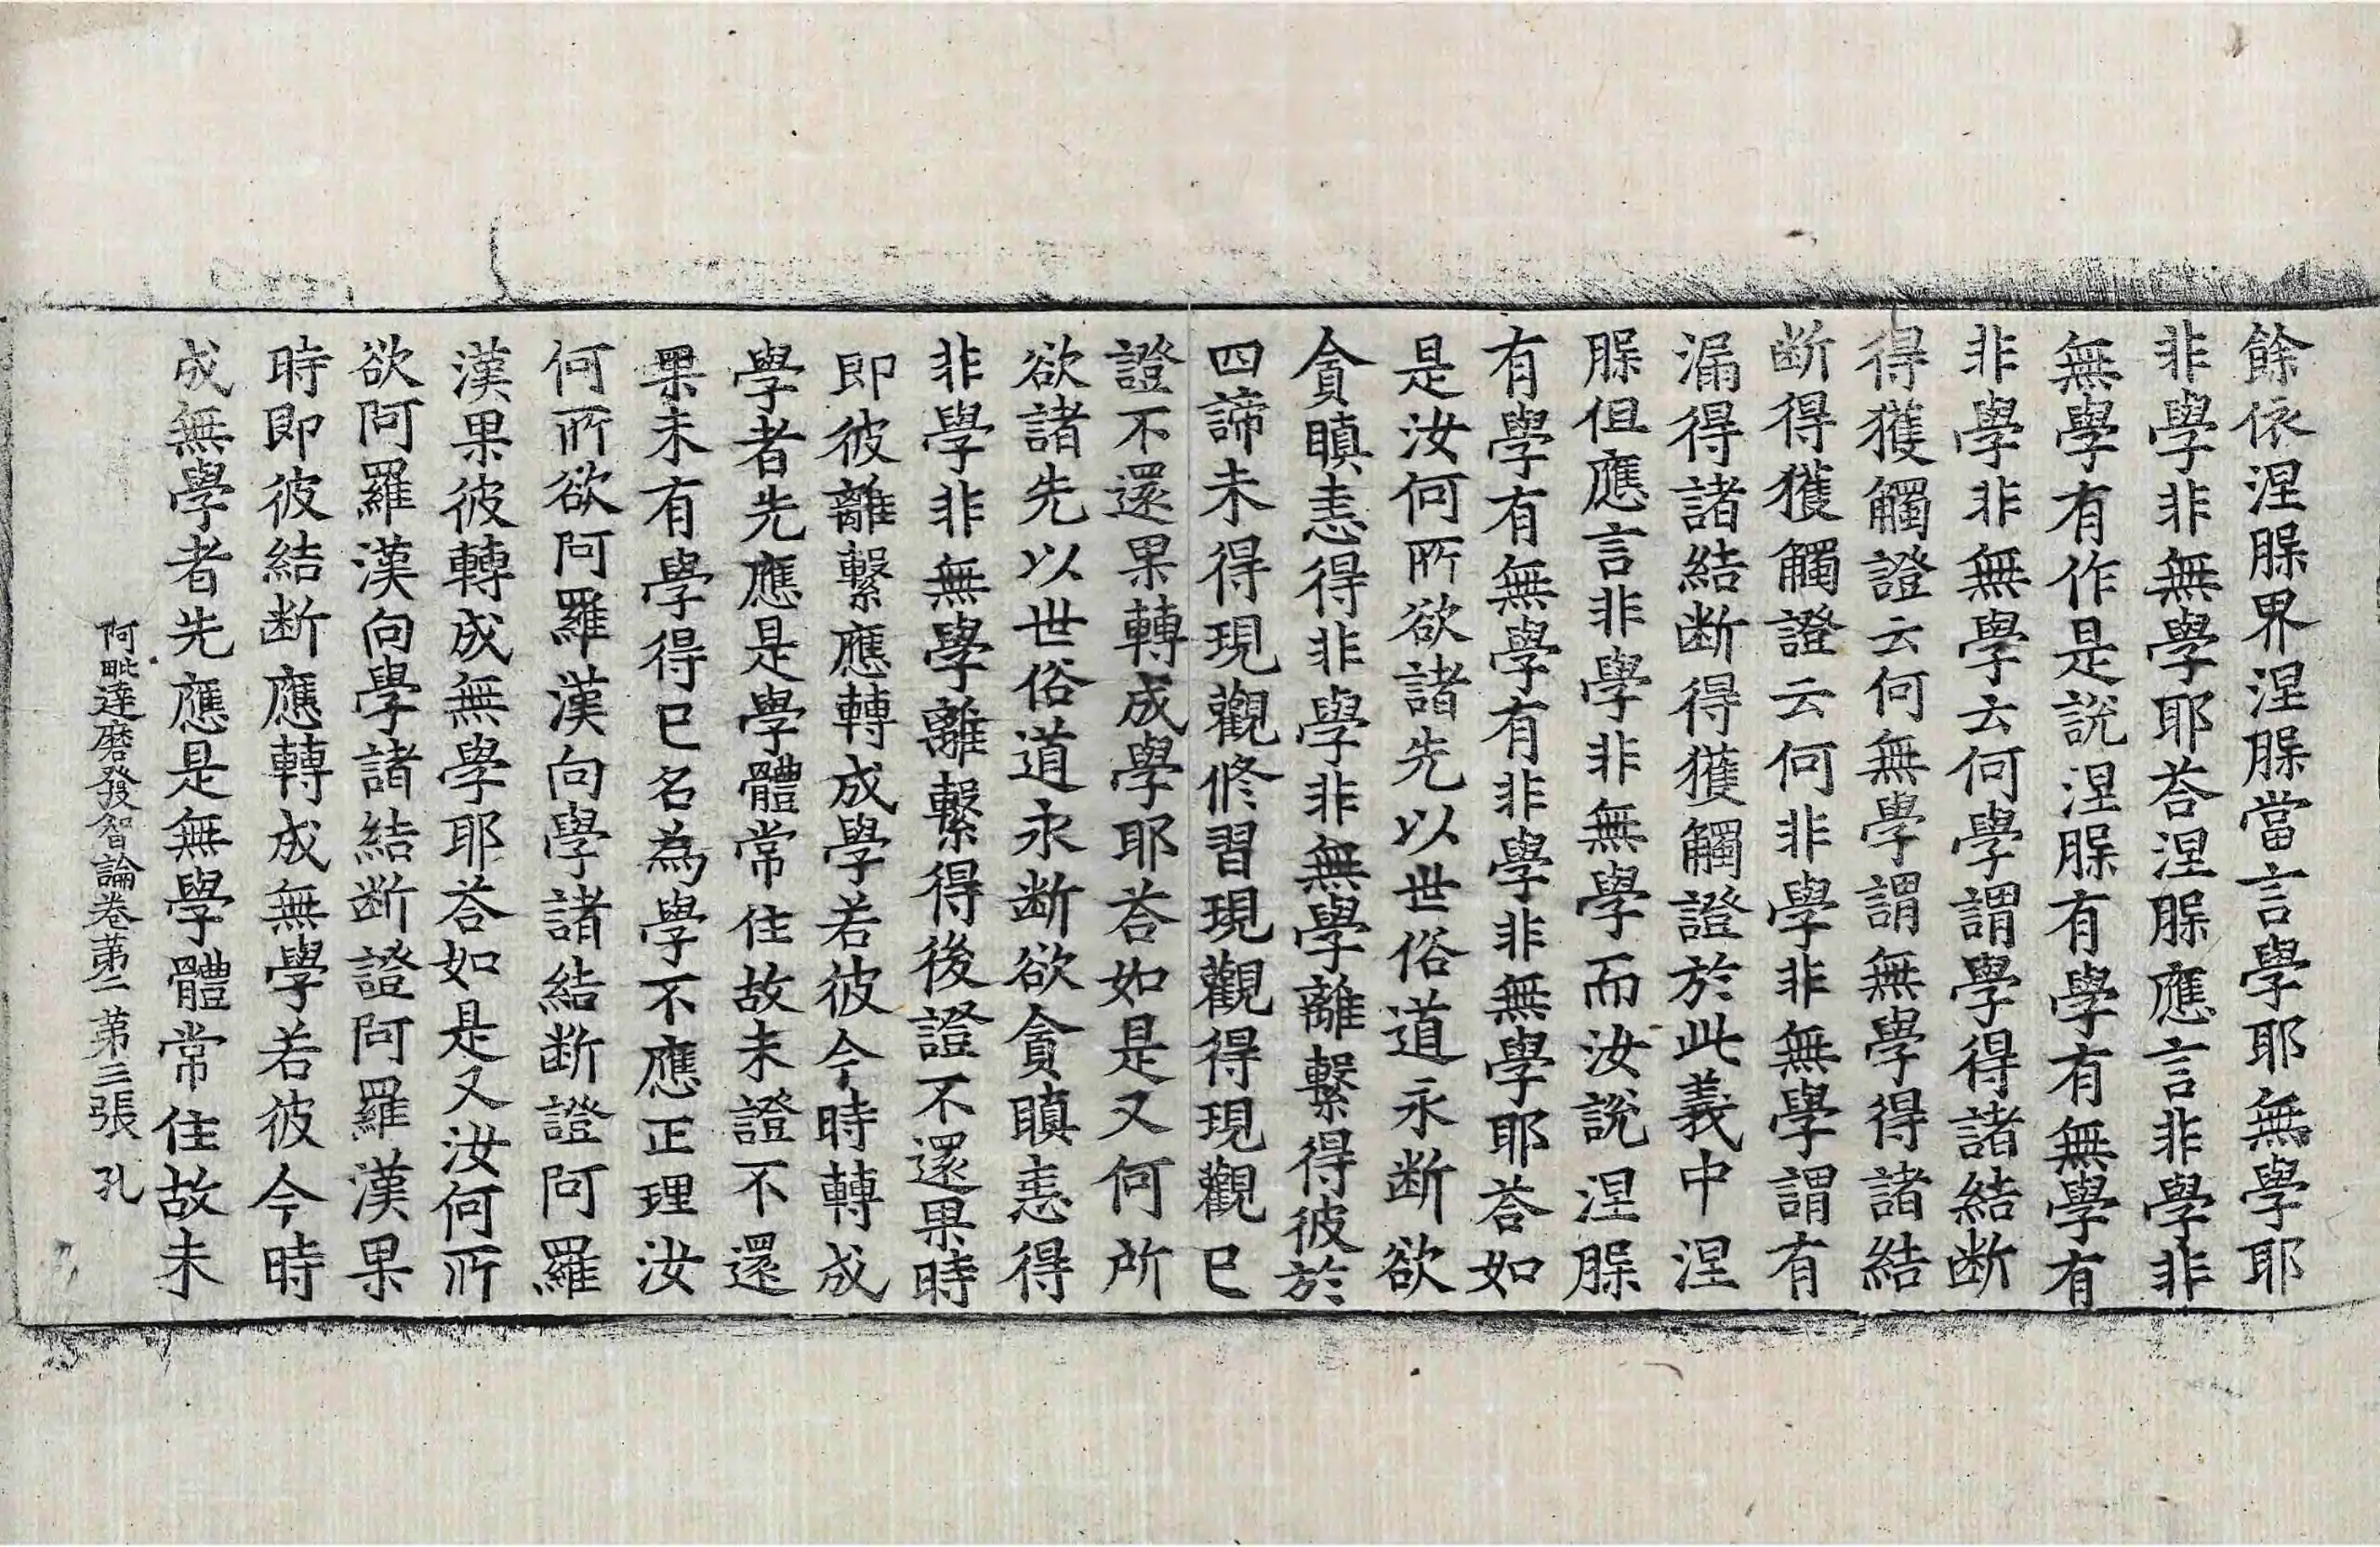 餘依涅槃界涅槃當言學耶無學耶
非學非無學耶荅涅槃應言非學非
無學有作是說涅槃有學有無學有
非學非無學云何學謂學得諸結断
得獲觸證云何無學謂無學得諸結
断得獲觸證云何非學非無學謂有
漏得諸結断得獲觸證於此義中涅
槃但應言非學非無學而汝說涅槃
有學有無學有非學非無學耶荅如
是汝何所欲諸先以世俗道永断欲
貪瞋恚得非學非無學離繫得彼於
四諦未得現觀修習現觀得現觀已
證不還果轉成學耶荅如是又何所
欲諸先以世俗道永断欲貪瞋恚得
非學非無學離繫得後證不還果時
即彼離繫應轉成學若彼今時轉成
學者先應是學體常住故未證不還
果未有學得已名為學不應正理汝
何所欲阿羅漢向學諸結断證阿羅
漢果彼轉成無學耶荅如是又汝何所
欲阿羅漢向學諸結断證阿羅漢果
時即彼結断應轉成無學若彼今時
成無學者先應是無學體常住故未
阿毗達磨發智論卷第二 第三張 孔